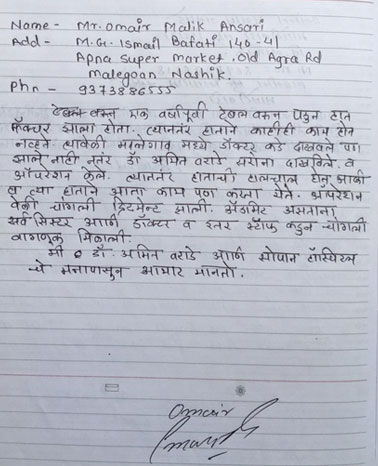 Name - Mr. Omair Malik Ansari
Add - M.G. Ismail Bafati 140-41
Apna Super Market, Old Agra Rd
Malegoan Nashik.
Phn - 9373886555
एक वर्षापूर्वी टेबल वरून पडुन हात
फ्रॅक्चर झाला होता. त्यानंतर हाताने काहीही काम होत
नव्हते. त्यावेळी मालेगाव मध्ये डॉक्टर कडे दाखवले पण
झाले नाही नंतर डॉ अमित वराडे यांना दाखविले. व
ऑपरेशन केले. त्यानंतर हाताची हालचाल होत झाली
व त्या हाताने आता काम पण करता येते. ऑपरेशन
वेळी चांगली ट्रिटमेंट झाली. अॅडमिट असताना
सर्व सिस्टर आणि डॉक्टर व इतर स्टाफ कडुन चांगली
वागणुक मिळाली.
मी डॉ. अमित वराडे आणि सोपान हॉस्पिटल
चे मनापासुन आभार मानतो.
Omair